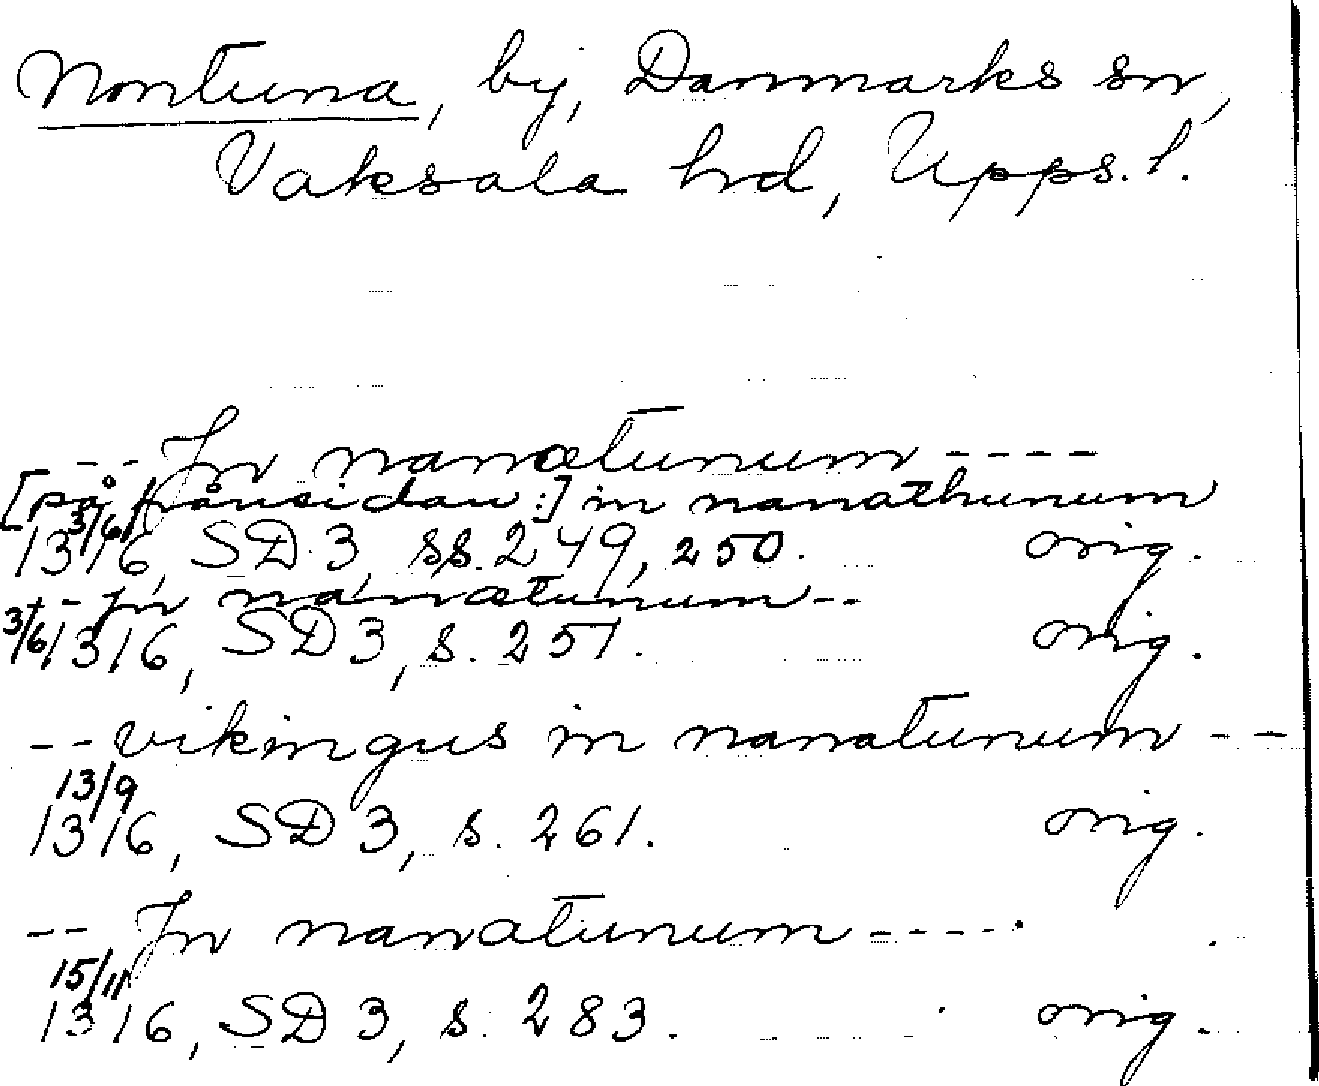 Nontuna, by, Danmarks sn,
Vaksala hd, Upps. l.
-- Jn nanætunum ----
[på frånsidan:] in nanathunum
3/6 1316, SD 3, ss. 249, 250. orig.
-- Jn nanætunum --
3/6 1316, SD 3, s. 251. orig.
-- vikingus in nanatunum --
13/9
1316, SD 3, s. 261. orig.
-- Jn nanatunum ----
15/11
1316, SD 3, s. 283. orig.